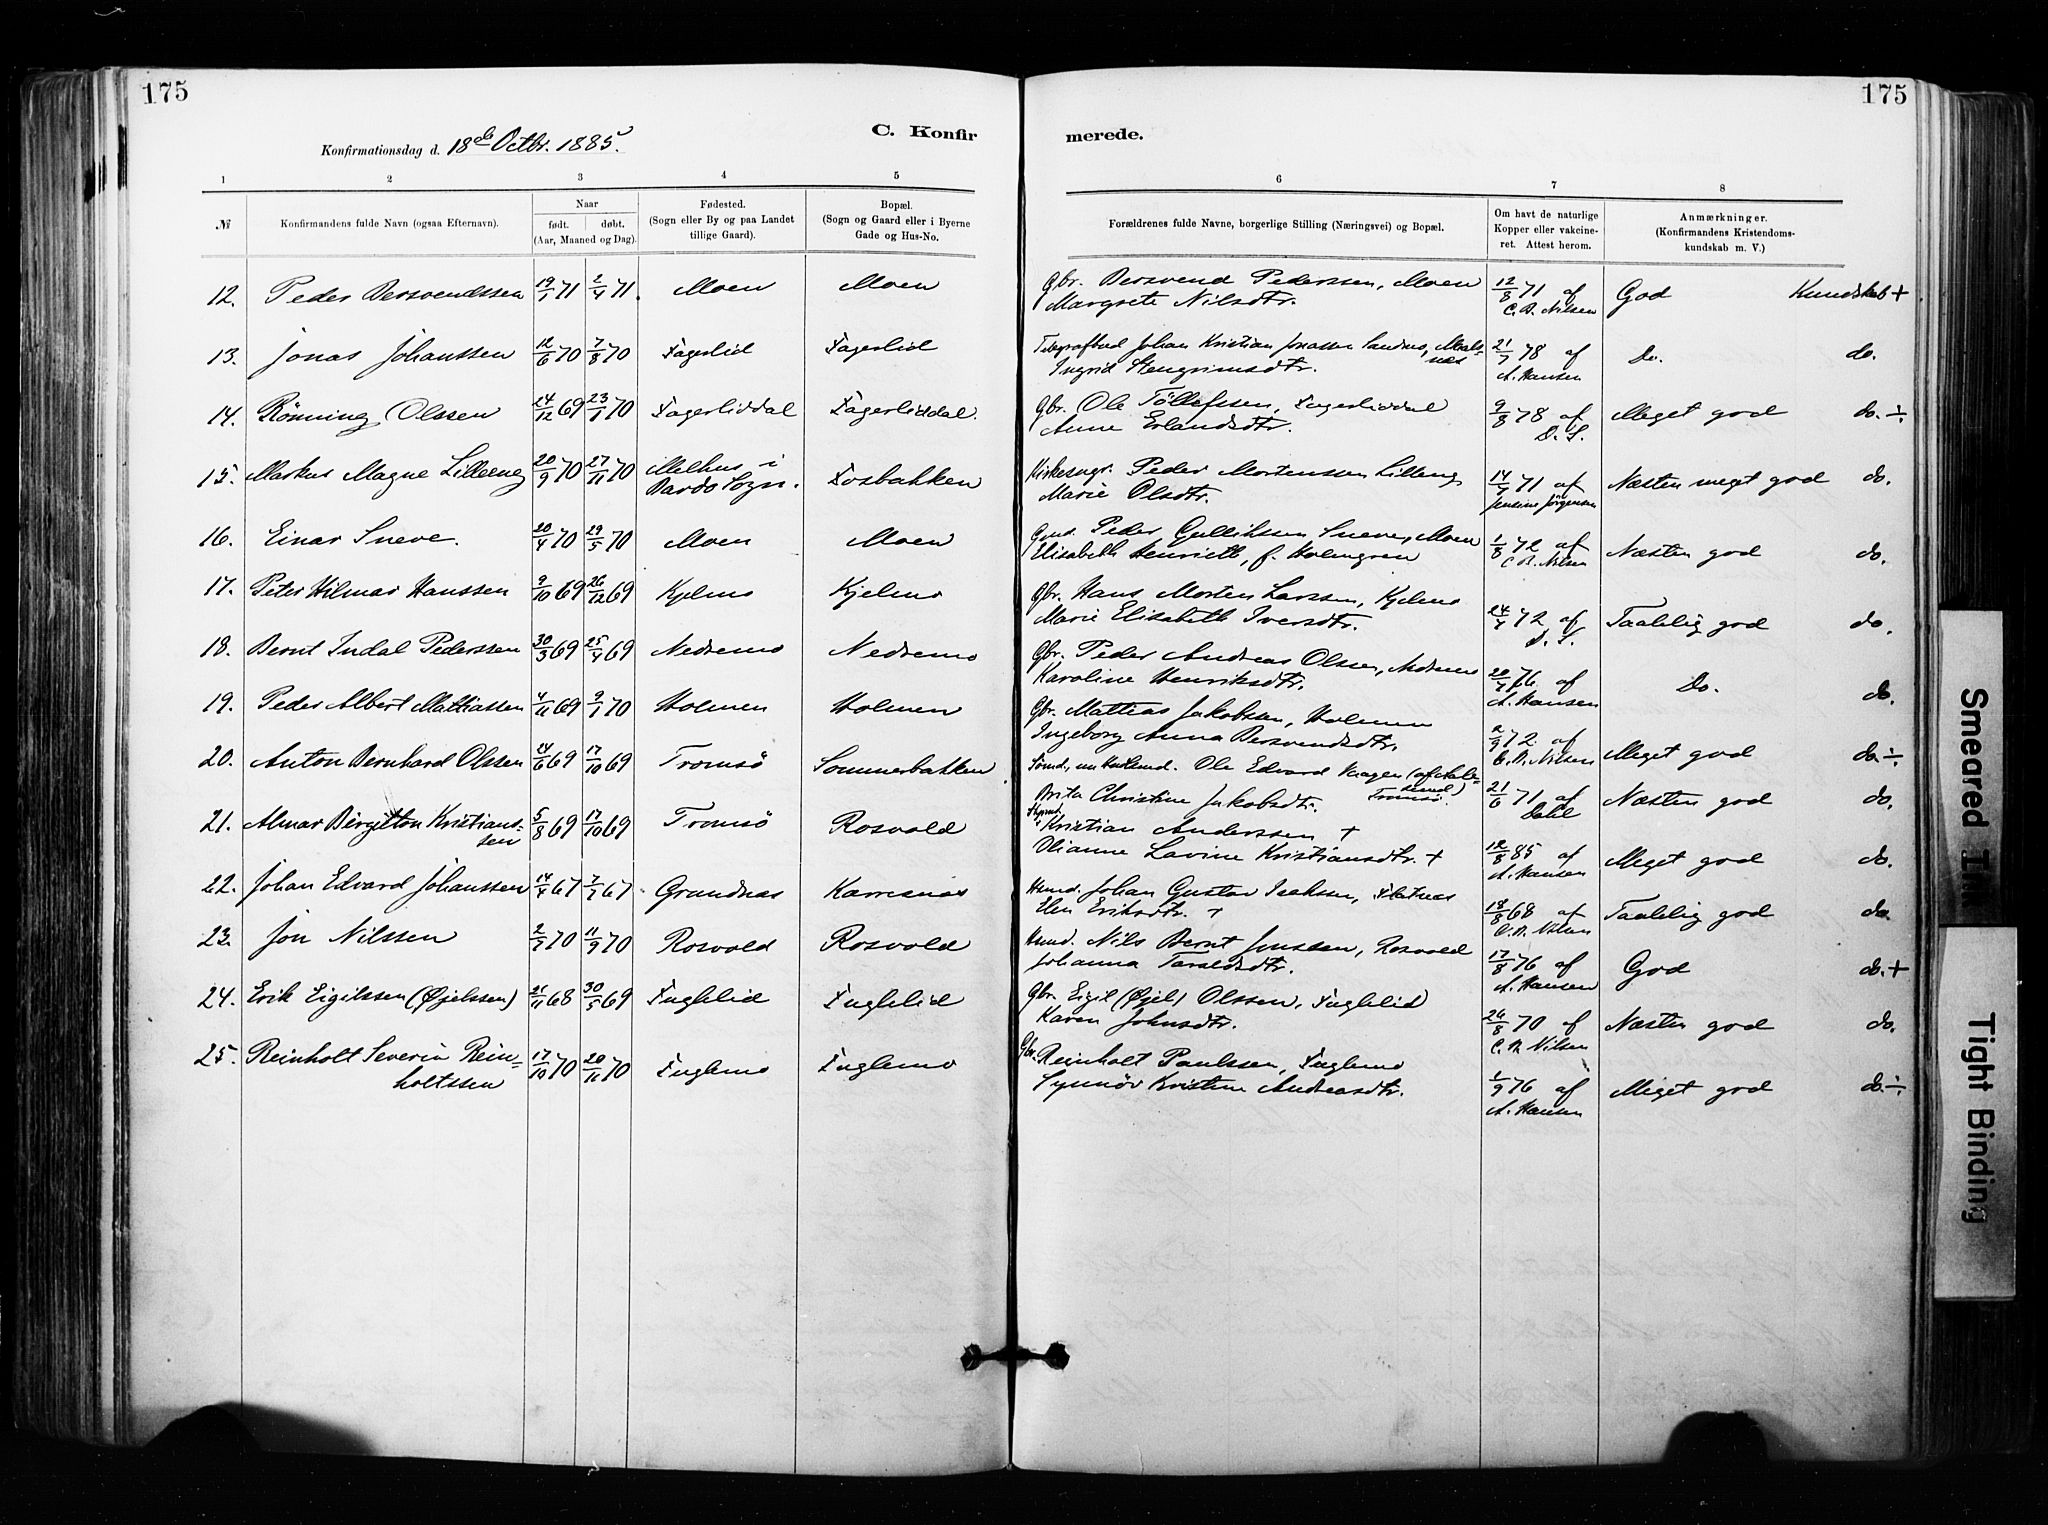 175
175
C. Konfir
merede.
Konfirmationsdag d. 18de Octbr. 1885.
1 2 3 4 5 6 7 8
№ Konfirmandens fulde Navn (ogsaa Efternavn).
Naar
født. døbt.
(Aar, Maaned og Dag).
Fødested.
(Sogn eller By og paa Landet
tillige Gaard).
Bopæl.
(Sogn og Gaard eller i Byerne
Gade og Hus-No.
Forældrenes fulde Navne, borgerlige Stilling (Næringsvei) og Bopæl.
Om havt de naturlige
Kopper eller vakcine-
ret. Attest herom.
Anmærkninger.
(Konfirmandens Kristendoms-
kundskab m. V.)
12. Peder Bersvendssen 19/1 71 2/4 71. Moen Moen Gbr. Bersvend Pederssen, Moen
Margrete Nilsdtr. 12/8 71 af
C. B. Nilsen God Kundskab +
13. Jonas Johanssen 12/6 70 7/8 70 Fagerlid Fagerlid Telegrafbud Johan Kristian Jonassen Sandnes, Maals-
næs
Ingrid Stengrimsdtr. 21/7 78 af
A. Hansen Do. do.
14. Rönning Olssen 24/12 69 23/1 70 Fagerliddal Fagerliddal. Gbr. Ole Tøllefssen, Fagerliddal
Anne Erlandsdtr. 9/8 78 af
D. S. Meget god do. ÷
15. Markus Magne Lilleeng 20/9 70 27/11 70 Melhus i
Bardo Sogn. Fosbakken Kirkesngr. Peder Mortenssen Lilleng
Marie Olsdtr. 14/7 71 af
Jensine Jörgensen Næsten meget god do.
16. Einar Sneve. 20/4 70 29/5 70 Moen Moen Peder Gulliksen Sneve, Moen
Elisabeth Henriette, f. Holmgren 1/8 72 af
C. B. Nilsen Næsten god do.
17. Peter Hilmar Hanssen 9/10 69 26/12 69 Kjelmo Kjelmo Gbr. Hans Morten Larssen, Kjelmo
Marie Elisabeth Iversdtr. 24/7 72 af
D. S. Taalelig god do.
18. Bernt Indal Pederssen 30/3 69 25/4 69 Nedremo Nedremo Gbr. Peder Andreas Olssen, Nedremo
Karoline Henriksdtr. 20/7 76 af
A. Hansen Do. do.
19. Peder Albert Mathiassen 4/11 69 9/1 70 Holmen Holmen Gbr. Mattias Jakobssen, Holmen
Ingeborg Anna Bersvendsdtr. 2/9 72 af
C. B. Nilsen Meget god do. ÷
20. Anton Bernhard Olssen 14/6 69 17/10 69 Tromsö Sommerbakken Ole Edvard
Brita Christine Jakobsdtr. Tromsö. 21/6 71 af
Dahl Næsten god do.
21. Almar Birgitton Kristians-
sen 5/8 69 17/10 69 Tromsö Rosvold Kristian Anderssen +
Olianne Lavine Kristiansdtr. + 12/8 85 af
A. Hansen Meget god do.
22. Johan Edvard Johanssen 14/4 67 7/7 67. Grundnæs Karresnæs Husmd. Johan Gustav Isakssen,
Elen Eriksdtr. + 18/8 68 af
C. B. Nilsen Taalelig god do.
23. Jon Nilssen 2/7 70 11/9 70 Rosvold Rosvold Husmd. Nils Bernt Jonssen, Rosvold
Johanna Taraldsdtr. 17/8 76 af
A. Hansen God do. +
24. Erik Eigilssen (Øjelssen) 21/11 68 30/5 69 Fuglelid Fuglelid Gbr. Eigil (Øjel) Olssen, Fuglelid
Karen Johnsdtr. 26/8 70 af
C. B. Nilsen Næsten god do.
25. Reinholt Severin Rein-
holtssen 17/10 70 20/11 70 Fuglemo Fuglemo Gbr. Reinholt Paulssen, Fuglemo
Synnöv Kristine Andreasdtr. 1/9 76 af
A. Hansen Meget god do. ÷
Smeared Ink
Tight Binding